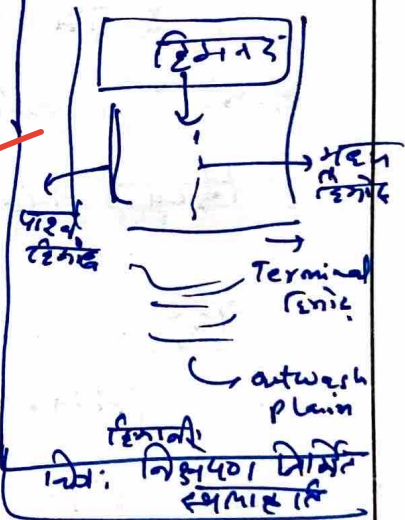 हिमनद
मध्य
हिमोढ
पार्श्व
हिमोढ
Terminal
हिमोढ
outwash
plain
हिमानी
चित्र: निक्षेपण निर्मित
स्थलाकृति